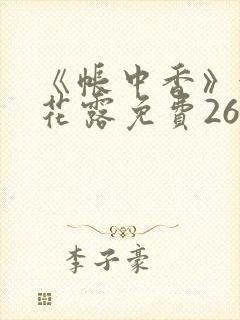 《帐中香》
花露免費26
李子豪